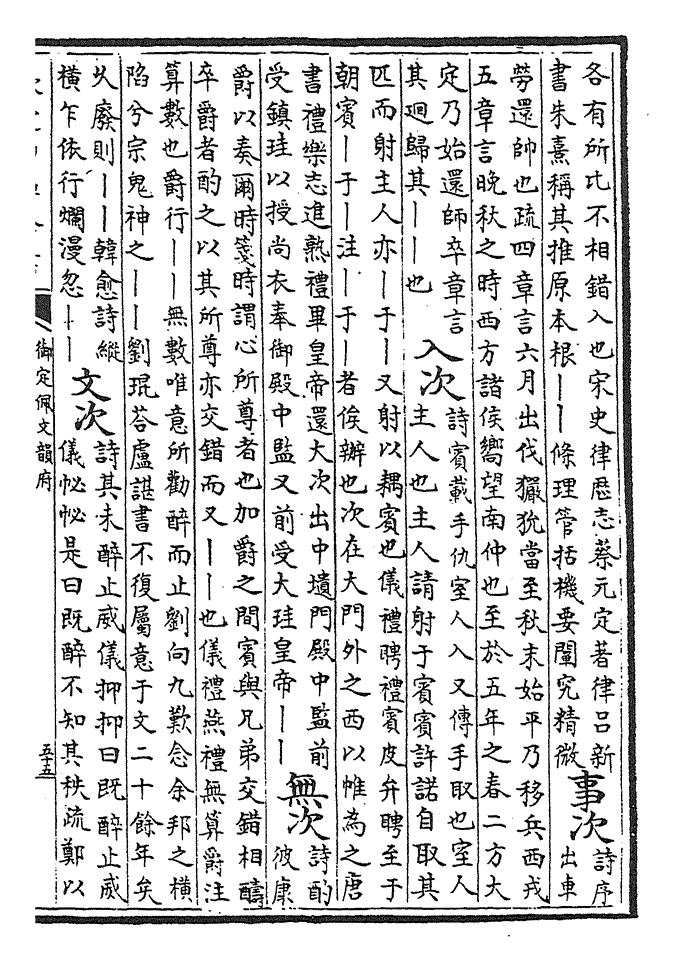 各有所比不相錯入也宋史律厯志蔡元定著律呂新
書朱熹稱其推原本根丨丨條理管括機要闡究精微
事次
詩序
出車
勞還帥也疏四章言六月出伐玁狁當至秋末始平乃移兵西戎
五章言晚秋之時西方諸侯嚮望南仲也至於五年之春二方大
定乃始還師卒章言
其廻歸其丨丨也
入次
詩賓載手仇室人入又傳手取也室人
主人也主人請射于賓賓許諾自取其
匹而射主人亦丨于丨又射以耦賓也儀禮聘禮賓皮弁聘至于
朝賓丨于丨注丨于丨者俟辦也次在大門外之西以帷為之唐
書禮樂志進熟禮畢皇帝還大次出中壝門殿中監前
受鎮珪以授尚衣奉御殿中監又前受大珪皇帝丨丨
無次
詩酌
彼康
爵以奏爾時箋時謂心所尊者也加爵之間賓與兄弟交錯相醻
卒爵者酌之以其所尊亦交錯而又丨丨也儀禮燕禮無算爵注
算數也爵行丨丨無數唯意所勸醉而止劉向九歎念余邦之橫
陷兮宗鬼神之丨丨劉琨荅盧諶書不復屬意于文二十餘年矣
乆廢則丨丨韓愈詩縱
橫乍依行爛漫忽丨丨
文次
詩其未醉止威儀抑抑曰既醉止威
儀怭怭是曰既醉不知其秩疏鄭以
御定佩文韻府
五十五